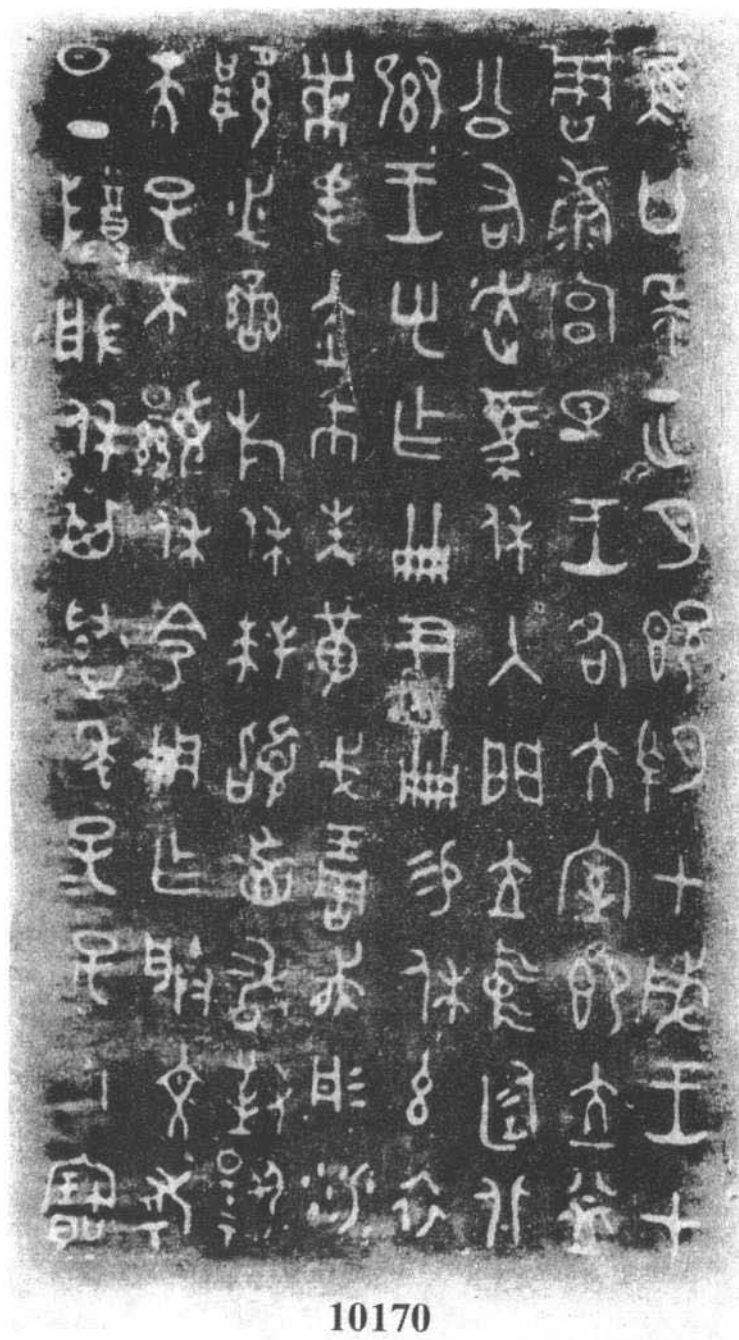 隹廿年正月既望甲戌王才
周康宮旦王各大室即立益
公右走馬休入門立中廷北
鄉王乎乍冊尹冊易休玄衣
黹屯赤巿朱黃戈琱㦸彤沙
厚柲䜌㫃休拜𩒨首敢對揚
天子不顯休令用乍朕文考
日丁尊般休其萬年子子孫孫永寶
10170